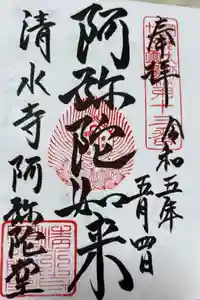 奉拝
令和五年
五月四日
阿弥陀如来
清水寺阿弥陀堂